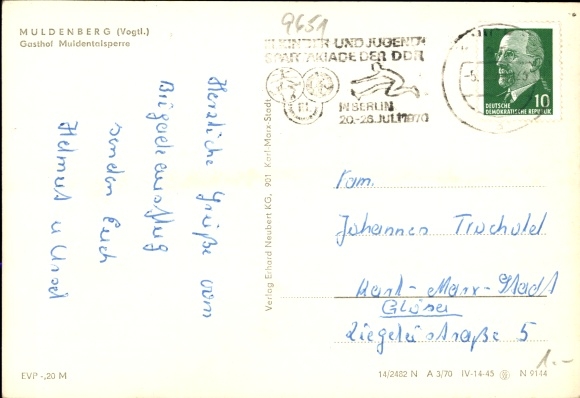 MULDENBERG (Vogtl.)
Gasthof Muldentalsperre
9651
KINDER UND JUGEND
SPARTAKIADE DER DDR
IN BERLIN
20.-26. JULI 1970
DEUTSCHE
DEMOKRATISCHE REPUBLIK
10
Herzliche Grüße vom
Brigadeausflug
senden Euch
Helmut u Ursel
Verlag Erhard Neubert KG, 901 Karl-Marx-Stadt
Fam.
Johannes
Karl-Marx-Stadt
Glösa
Ziegeleistraße 5
1.-
EVP -,20 M
14/2482 N A 3/70 IV-14-45 N 9144